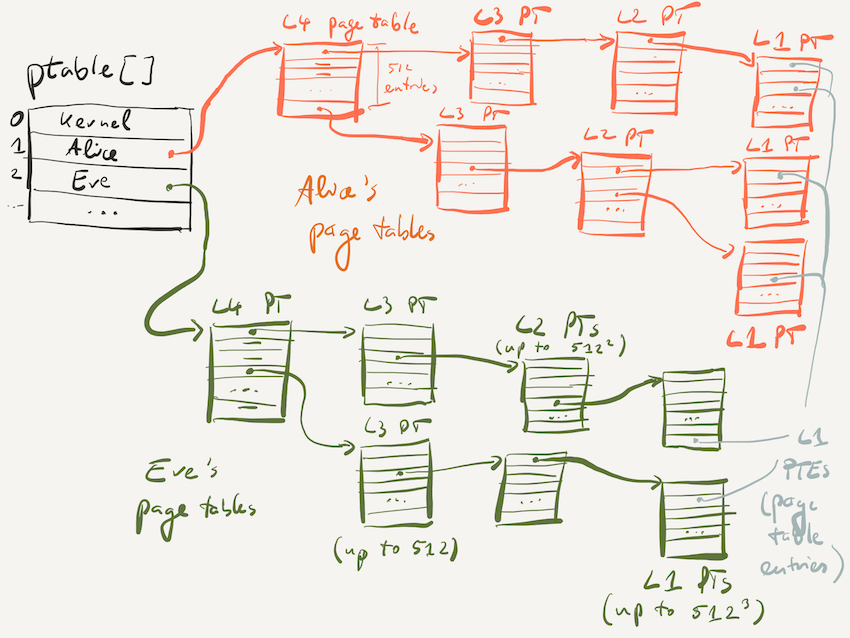 ptable[]
0 Kernel
1 Alice
2 Eve
... ...
L4 page table
512
entries
L3 PT
L2 PT
L1 PT
L3 PT
L2 PT
L1 PT
...
...
...
...
...
...
L1 PT
Alice's
page tables
L4 PT
L3 PT
L2 PTs
(up to 512²)
...
...
...
...
L3 PT
...
...
...
(up to 512)
Eve's
page tables
L1 PTs
(up to 512³)
L1
PTEs
(page
table
entries)